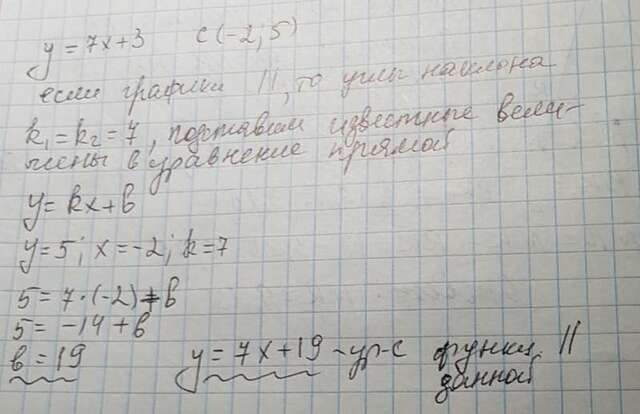 y = 7x+3 c(-2; 5)
если графики ||, то углы наклона
k₁ = k₂ = 7, подставим известные вели-
чены в уравнение прямой
y = kx + b
y = 5; x = -2; k = 7
5 = 7·(-2) + b
5 = -14 + b
b = 19 y = 7x + 19 - ур-е функции ||
данной